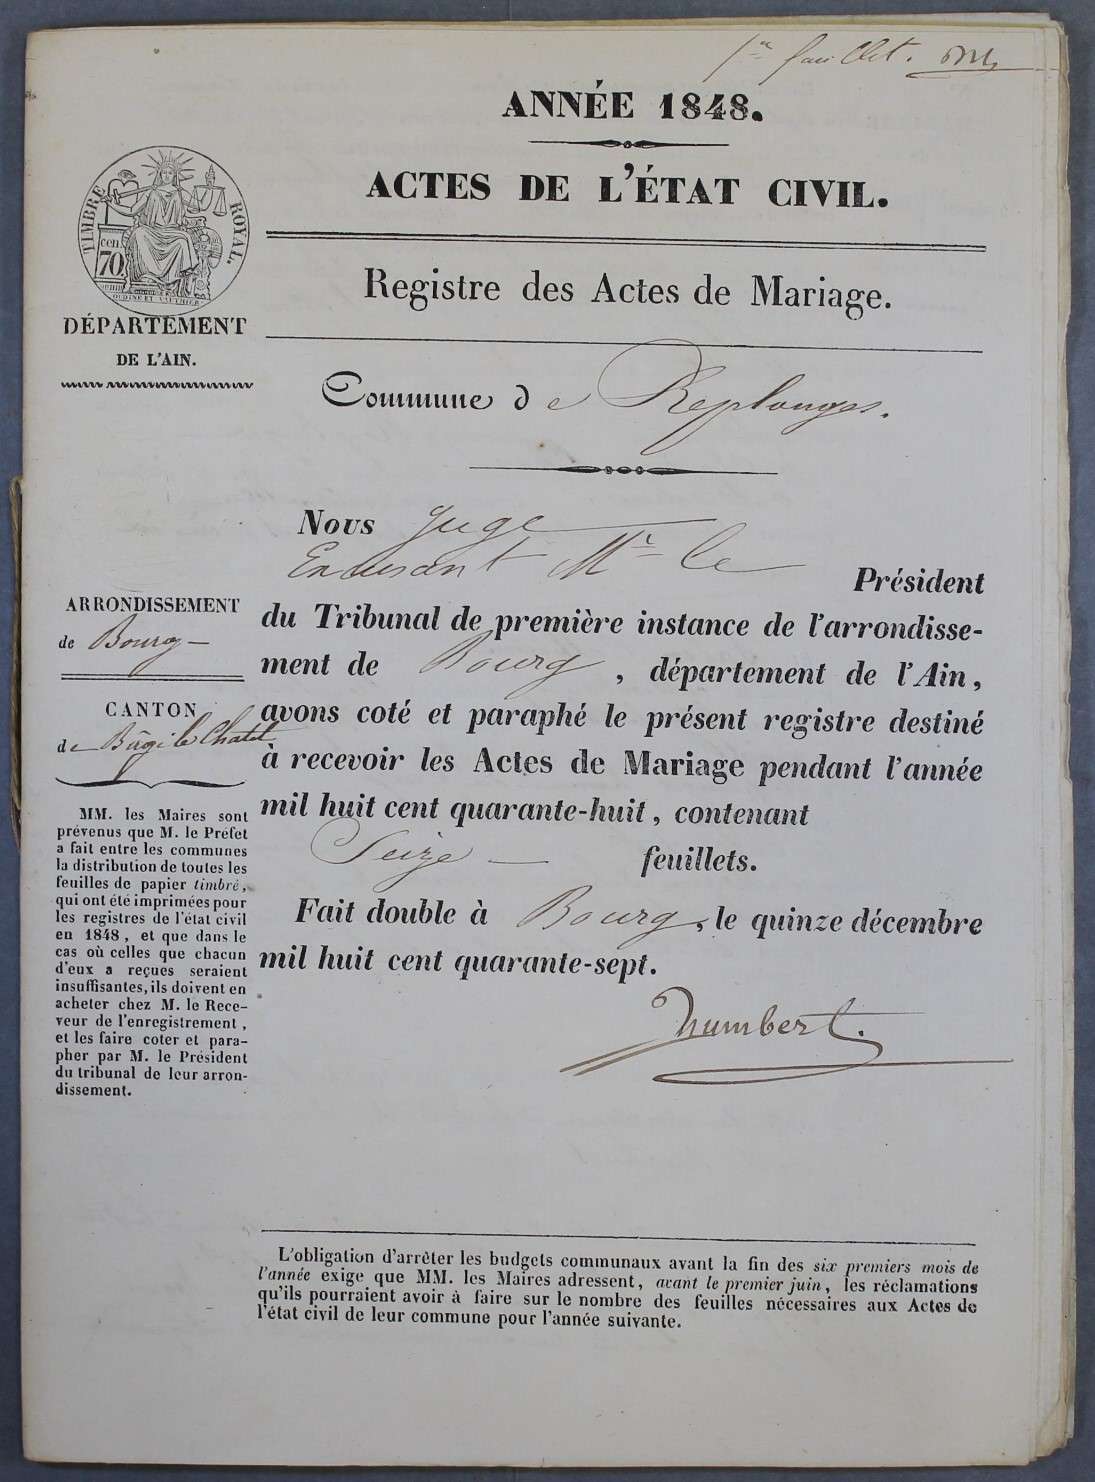 1er feuillet.
ANNÉE 1848.
ACTES DE L'ÉTAT CIVIL.
TIMBRE ROYAL.
cen.
70
OUDINÉ ET GAUTHIER
DÉPARTEMENT
DE L'AIN.
Registre des Actes de Mariage.
Commune de Replonges.
Nous Juge
En absant Mr. le Président
du Tribunal de première instance de l'arrondisse-
ment de Bourg, département de l'Ain,
avons coté et paraphé le présent registre destiné
à recevoir les Actes de Mariage pendant l'année
mil huit cent quarante-huit, contenant
Seize — feuillets.
Fait double à Bourg, le quinze décembre
mil huit cent quarante-sept.
humbert.
ARRONDISSEMENT
de Bourg —
CANTON
de Bâgé le Chatel
MM. les Maires sont
prévenus que M. le Préfet
a fait entre les communes
la distribution de toutes les
feuilles de papier timbré,
qui ont été imprimées pour
les registres de l'état civil
en 1848, et que dans le
cas où celles que chacun
d'eux a reçues seraient
insuffisantes, ils doivent en
acheter chez M. le Rece-
veur de l'enregistrement,
et les faire coter et para-
pher par M. le Président
du tribunal de leur arron-
dissement.
L'obligation d'arrêter les budgets communaux avant la fin des six premiers mois de
l'année exige que MM. les Maires adressent, avant le premier juin, les réclamations
qu'ils pourraient avoir à faire sur le nombre des feuilles nécessaires aux Actes de
l'état civil de leur commune pour l'année suivante.